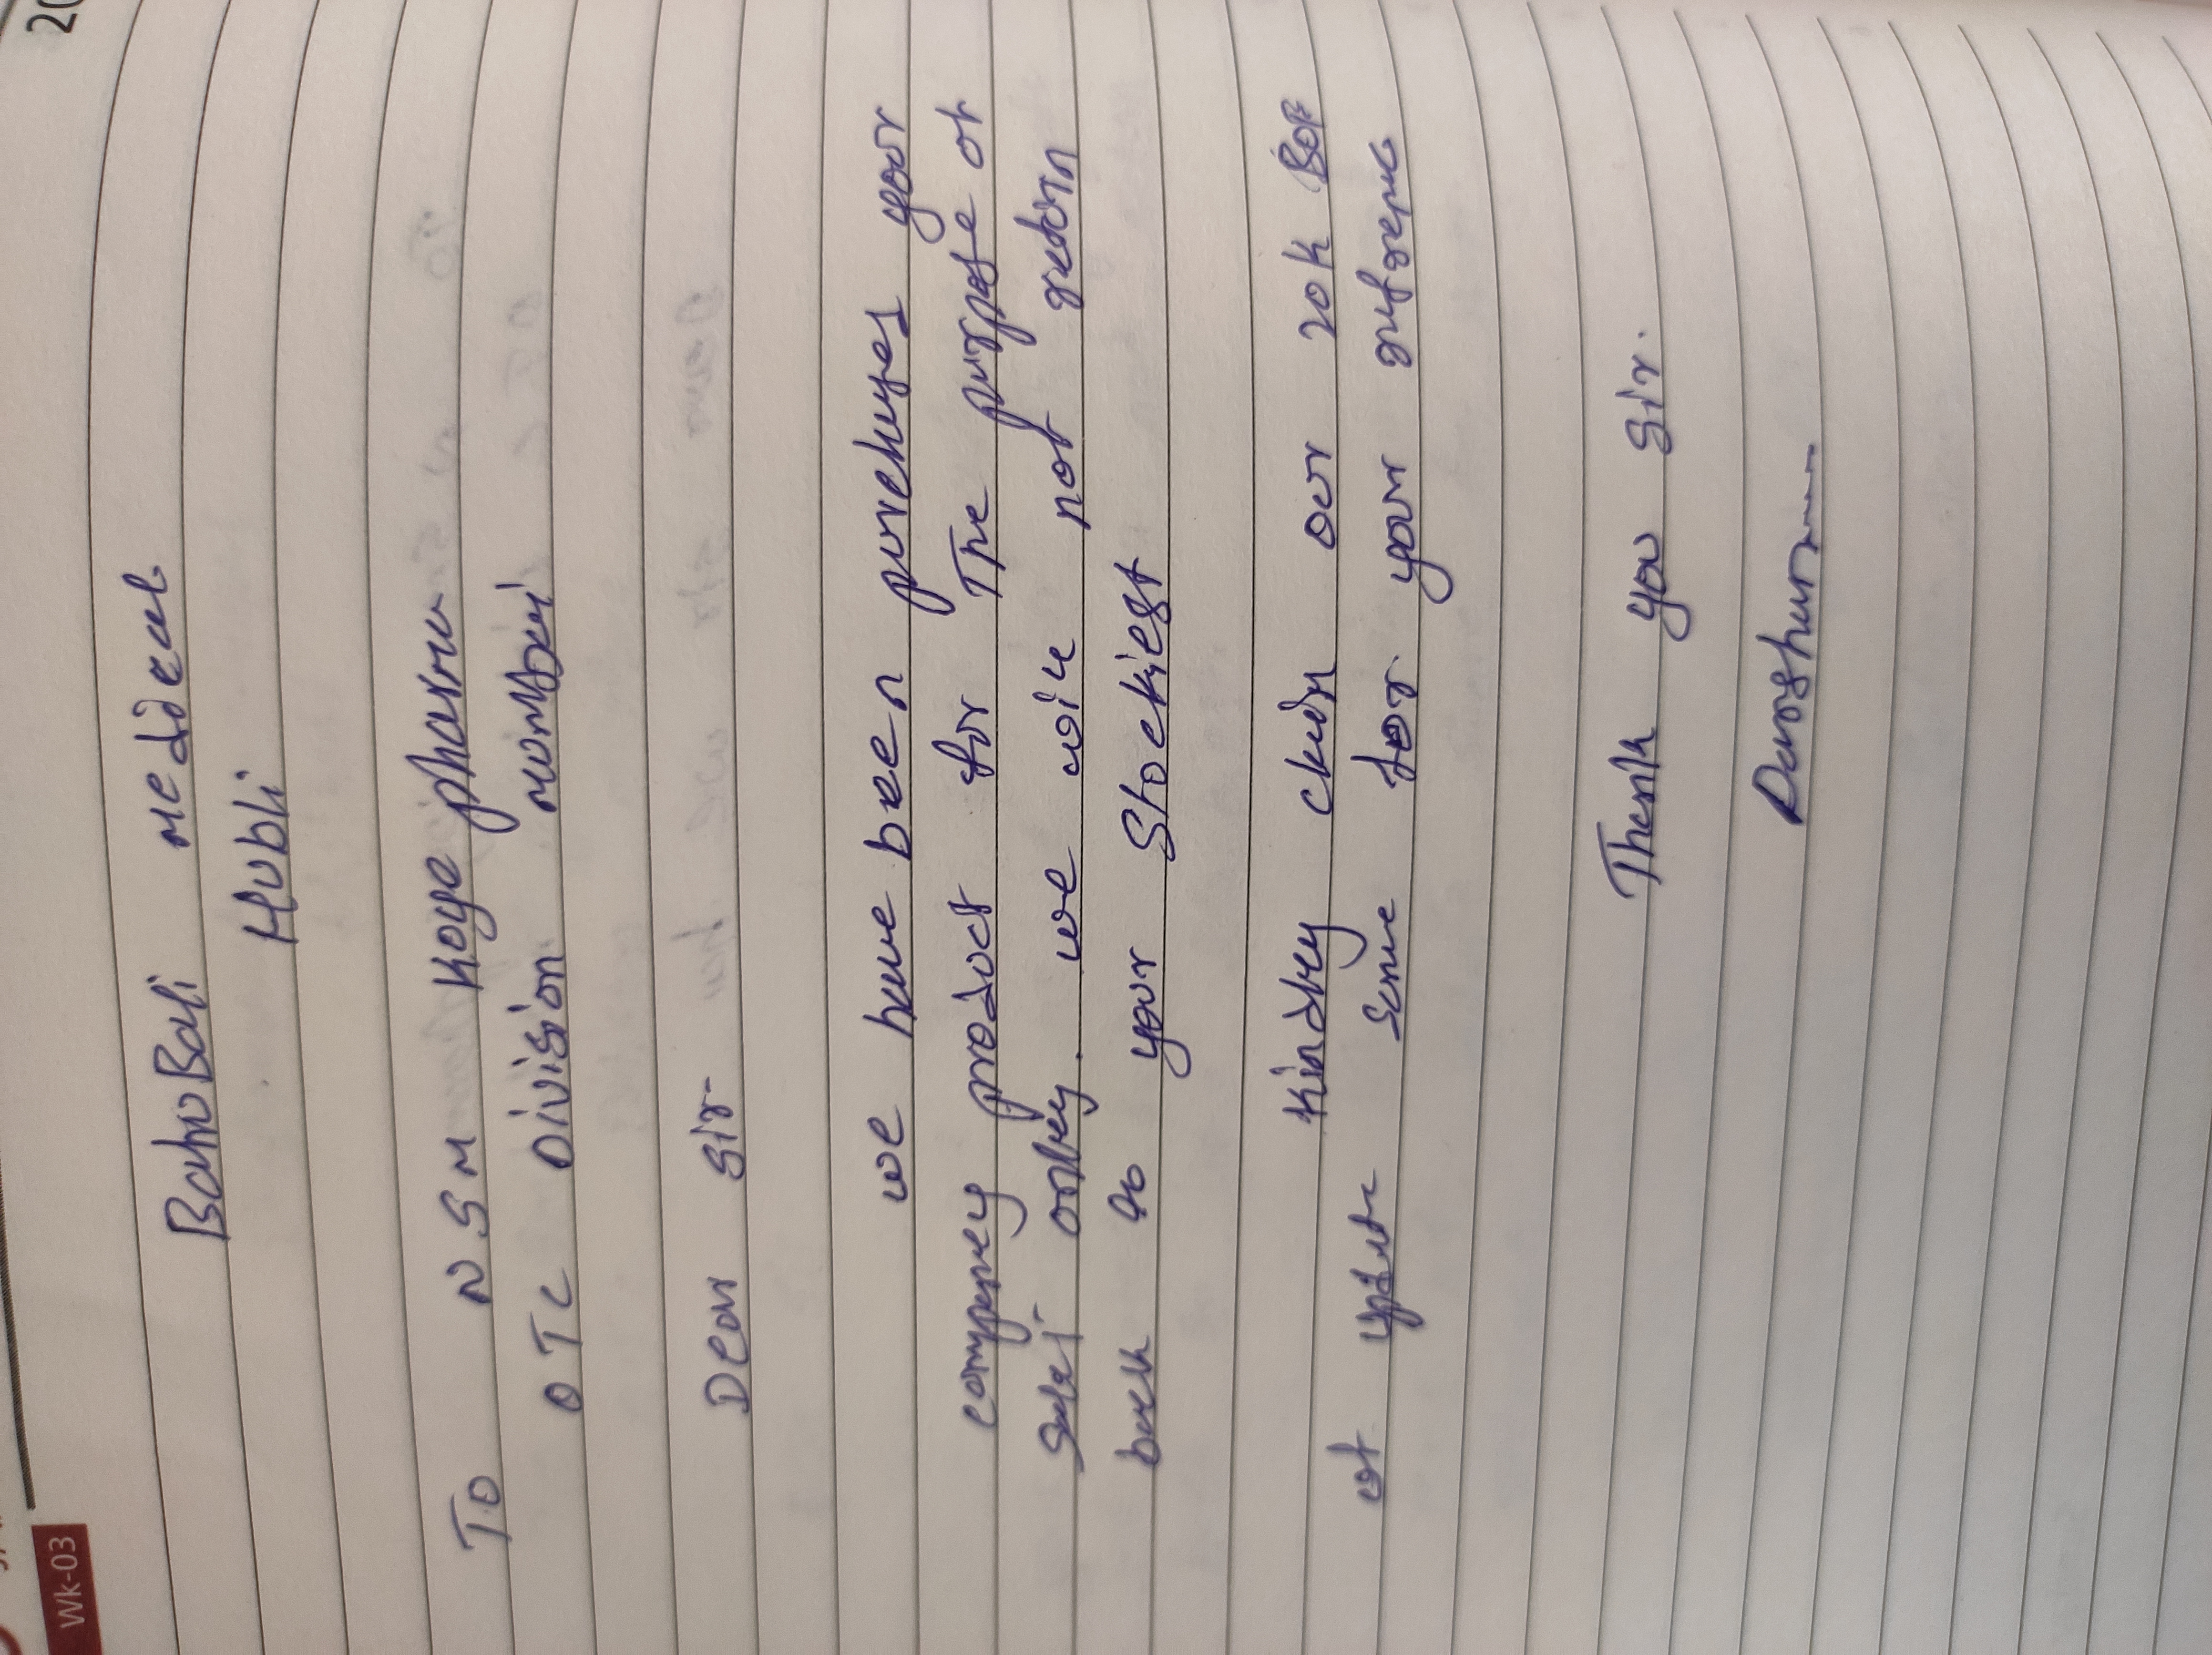 Wk-03
20
BahuBali medical
Hubli
To
N S M Koye pharma
O T C Division mumbai
Dear Sir
we have been purchuses your
company product for The purpose of
sale only. we will not return
back to your Stockiest
Kindley our 20k
of same for your refrence
Thank you Sir.